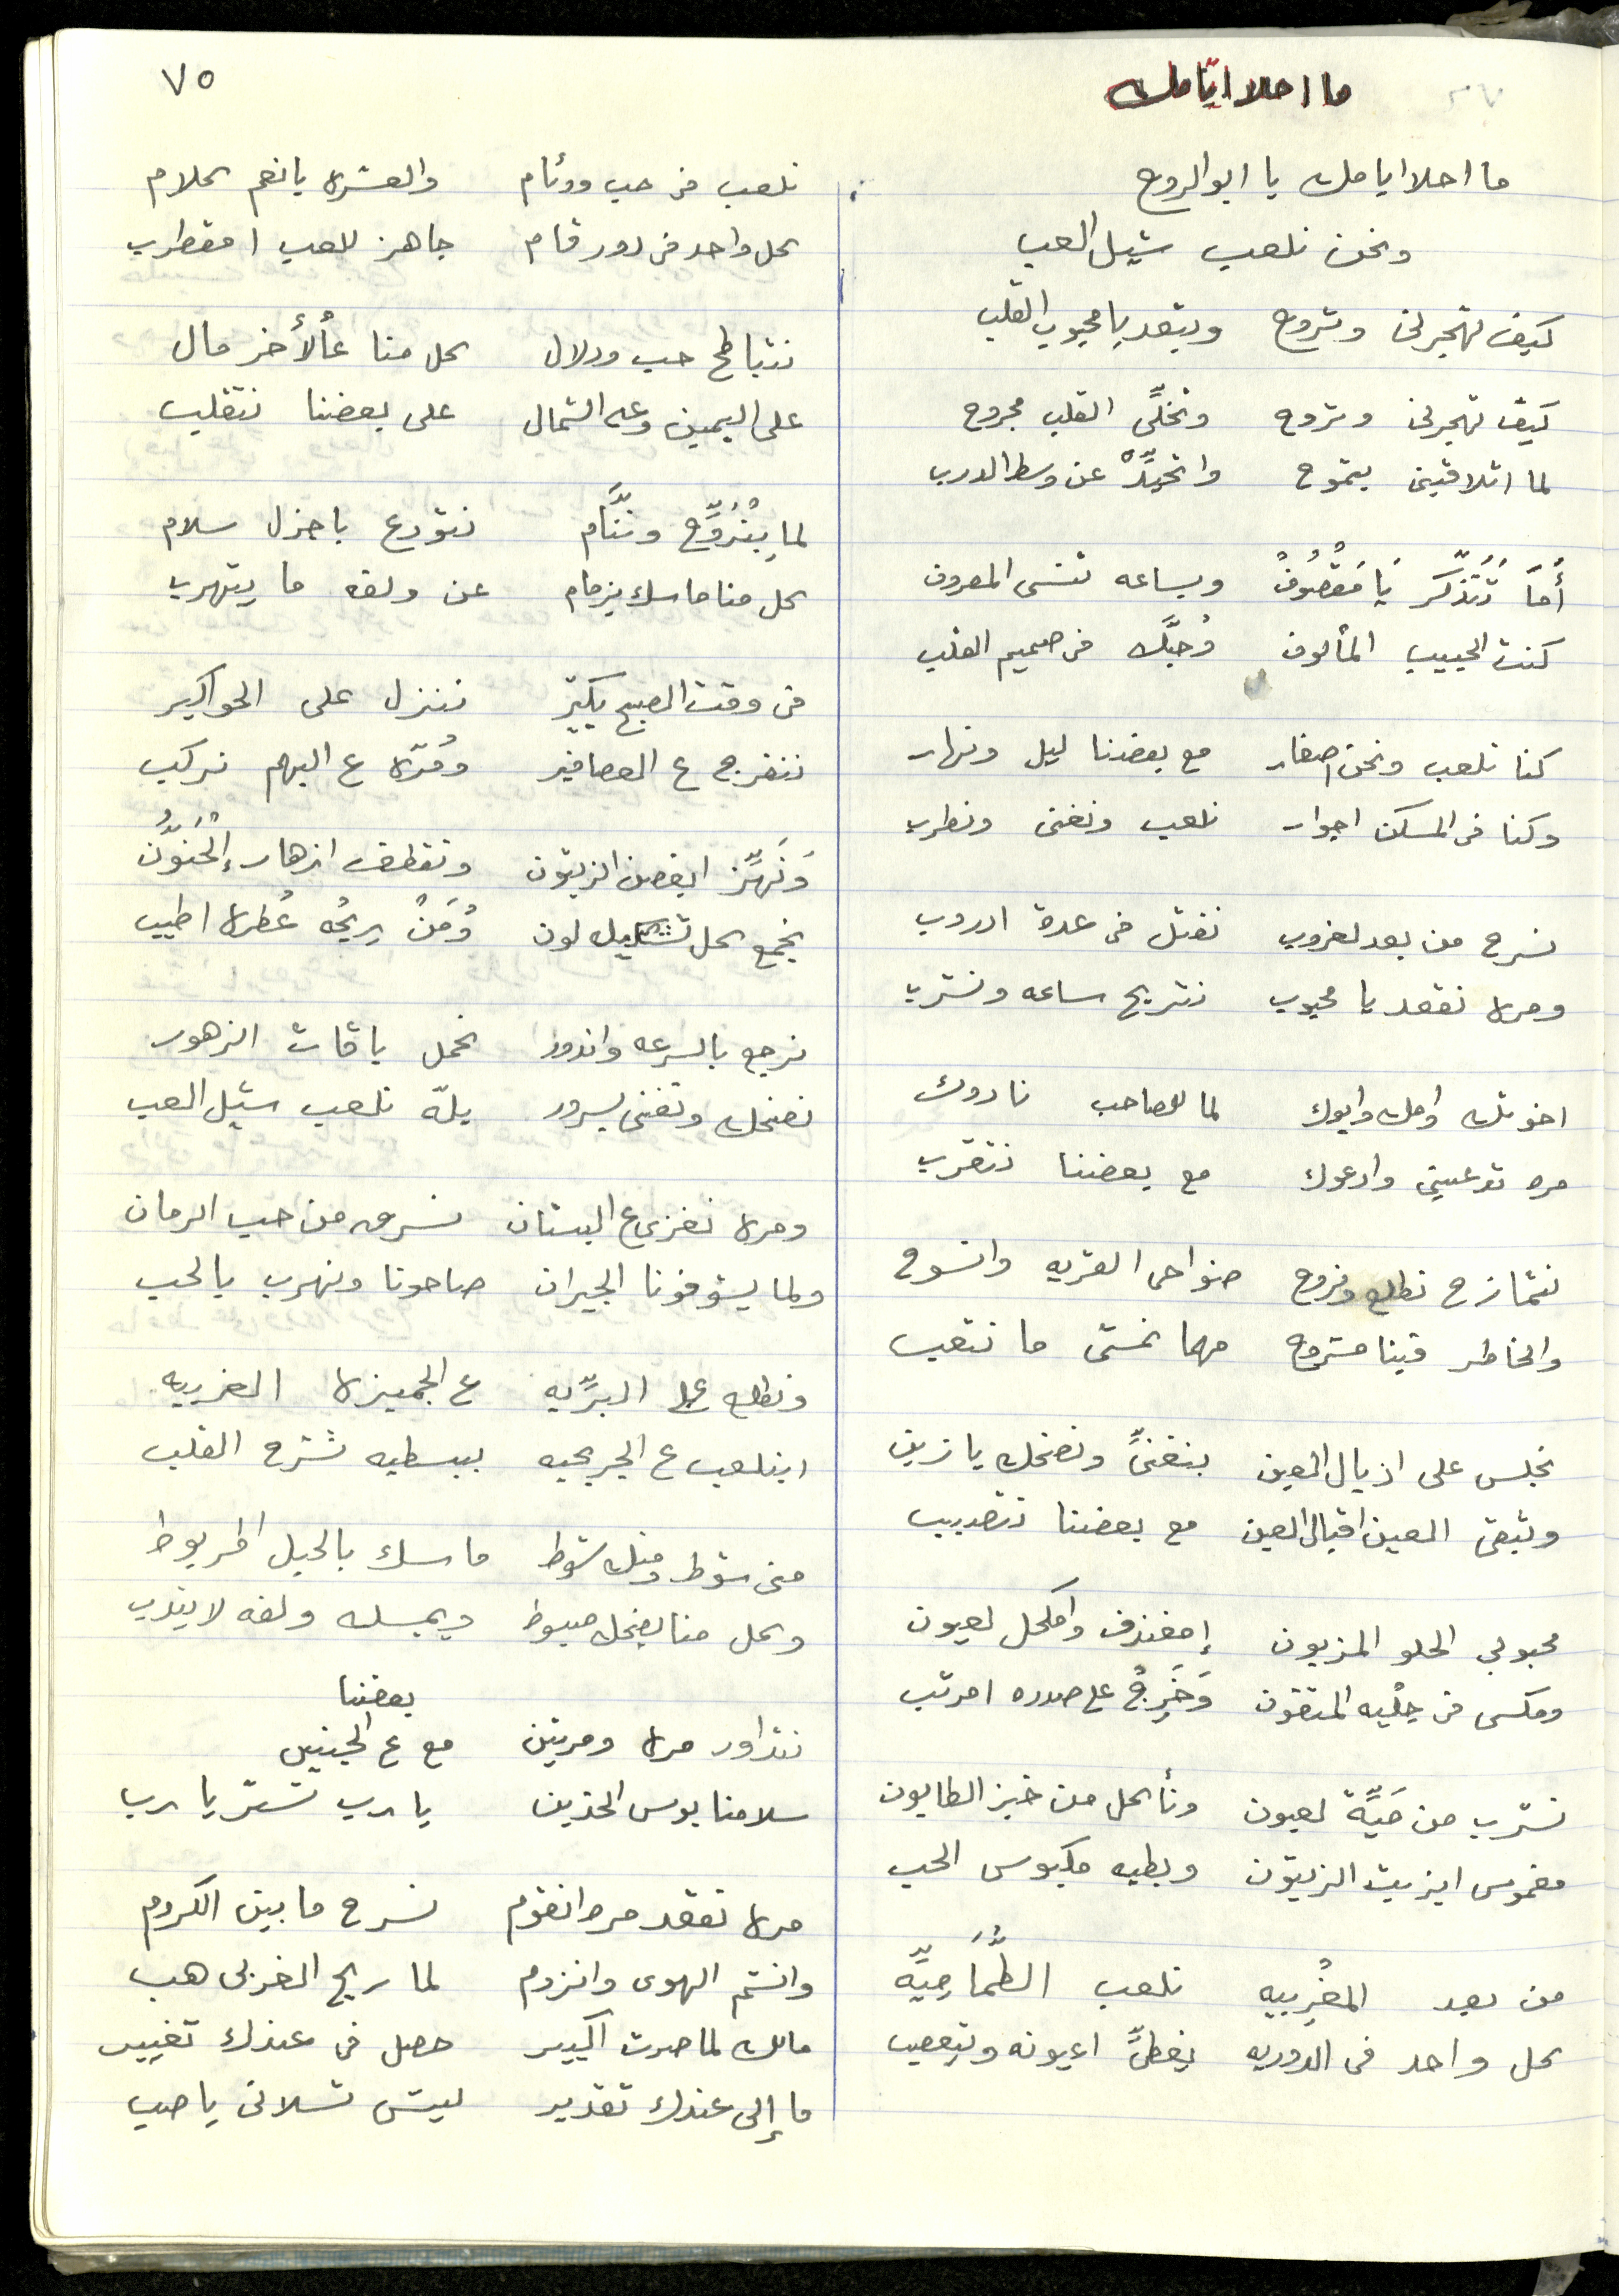 ٧٥
ما احلا ايّامك
ما احلا ايامك يا ابو الروح
ونحن نلعب شيل العب
كيف تهجرني وتروح وتبعد يا محبوب القلب
كيف تهجرني وتروح وتخلّي القلب مجروح
لما اتلاقيني بتموح واتحيّدْ عن وسط الدرب
أما تتذكّر يا مقصوف وبساعه تنسى المعروف
كنت الحبيب المألوف وُحبّك في صميم القلب
كنا نلعب ونحن اصغار مع بعضنا ليل ونهار
وكنا في المسكن اجوار نلعب ونغني ونطرب
نسرح من بعد لغروب نفتل في عدة ادروب
ومره نقعد يا محبوب نتريح ساعه ونشرب
اخوتك وامك وابوك لما للصاحب نادوك
مره تدعيني وادعوك مع بعضنا نتقرب
نتمازح نطلع ونروح ضواحي القريه وانسوح
والخاطر فينا مشروح مهما نمشي ما نتعب
نجلس على اذيال العين بنغنيّ ونضحك يا زين
وتبقى العين اقبال العين مع بعضنا نتصبب
محبوبي الحلو المزيون إمغندف وامكحل لعيون
ومكسي في جلْيه المتقون وَخَرِجُ على صدره امرتب
نشرب من مَيِّة لعيون ونأكل من خبز الطابون
مغموس ابزيت الزيتون وبطيه مكبوس الحب
من بعد المغربيه نلعب الطُّمَّاميِّه
كل واحد في الدوريه يغطيّ اعيونه وبتعصب
نلعب في حب ووئام والعشره يا نعم كلام
كل واحد في دور قام جاهز للعب امقطرب
نتباطح حب ودلال كل منا عالأخر مال
على اليمين وعه الشمال على بعضنا نتقلب
لما بِنْرَوِّح ونّنام نتودع باجزل سلام
كل منا ماسك بزمام عن ولفه ما يتهرب
في وقت الصبح بكيّر ننزل على الحواكير
نتفرج ع العصافير ومُرّه ع البهم نركب
وَنَهِّز ابغصن الزيتون ونقطف ازهار إلْحَنّونْ
نجمع كل تشكيل لون وُمَنْ ريحُه عُطره اطيب
نرجع بالسرعه واندور نحمل باقات الزهور
نضحك ونغني بسرور يلّه نلعب شيل العب
ومره نغزي ع البستان نسرق من حب الرمان
ولما يشوفونا الجيران صاحونا ونهرب بالحب
ونطلع على البرّيه ع الجميزه الغربيه
ابنلعب ع الجريجيه ببسطيه تشرح القلب
مني شوط ومنك شوط ماسك بالحبل المربوط
وكل منا بضحك مبسوط ويمسك ولفه لا يندب
نتداور مره ومرتين مع بعضنا ع الجنبين
سلامنا بوس الخدين يا رب تستر يا رب
مره نقعد مره انقوم نسرح ما بين الكروم
وانشم الهوى وانزوم لما ريح الغربي هب
مالك لما صرت اكبير حصل في عندك تغيير
ما إلي عندك تقدير ليش تسلاني يا صب